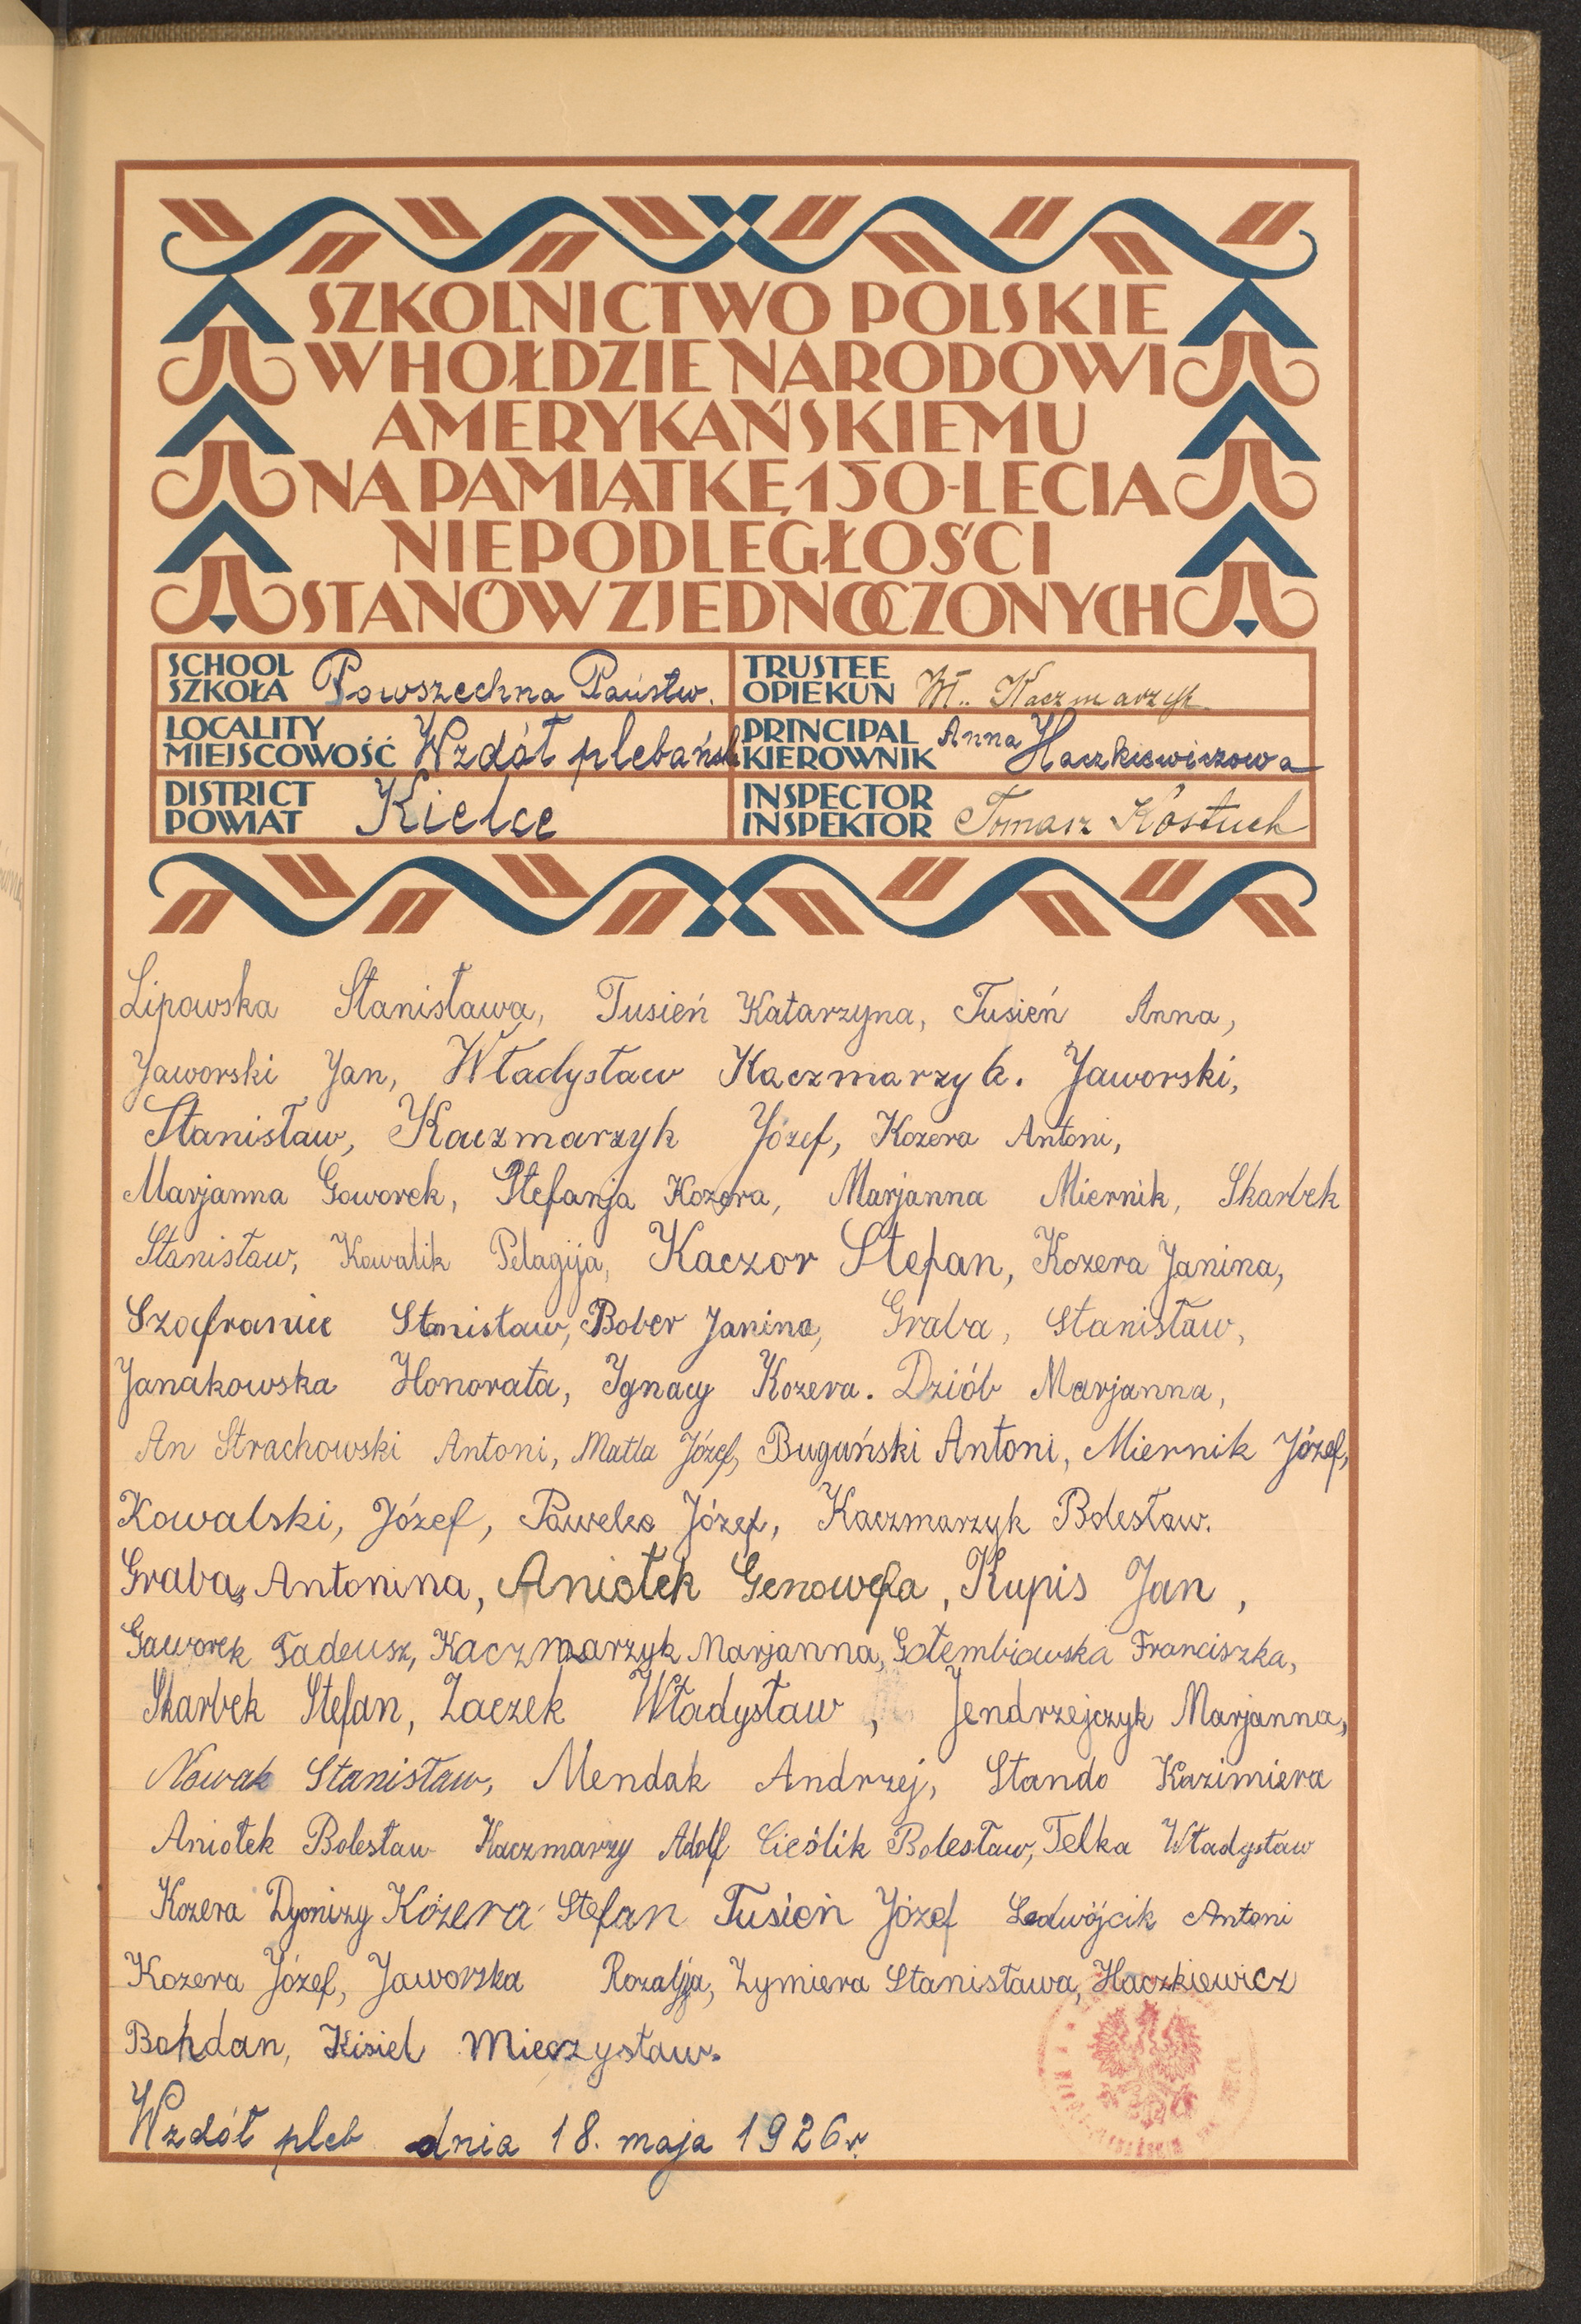 SZKOLNICTWO POLSKIE
W HOŁDZIE NARODOWI
AMERYKAŃSKIEMU
NA PAMIĄTKĘ 150-LECIA
NIEPODLEGŁOŚCI
STANÓW ZJEDNOCZONYCH
SCHOOL
SZKOŁA Powszechna Państw.
TRUSTEE
OPIEKUN Wł. Kaczmarzyk
LOCALITY
MIEJSCOWOŚĆ Wzdół plebański
PRINCIPAL
KIEROWNIK Anna Haczkiewiczowa
DISTRICT
POWIAT Kielce
INSPECTOR
INSPEKTOR Tomasz Kostuch
Lipowska Stanisława, Tusień Katarzyna, Tusień Anna,
Jaworski Jan, Władysław Kaczmarzyk. Jaworski,
Stanisław, Kaczmarzyk Józef, Kozera Antoni,
Marjanna Goworek, Stefanja Kozera, Marjanna Miernik, Skarbek
Stanisław, Kowalik Pelagija, Kaczor Stefan, Kozera Janina,
Szafraniec Stanisław, Bober Janina, Graba, Stanisław,
Janakowska Honorata, Ignacy Kozera. Dziób Marjanna,
An Strachowski Antoni, Matla Józef, Bugański Antoni, Miernik Józef,
Kowalski, Józef, Pawelec Józef, Kaczmarzyk Bolesław.
Graba, Antonina, Aniołek Genowefa, Kupis Jan,
Gaworek Tadeusz, Kaczmarzyk Marjanna, Gołembiowska Franciszka,
Skarbek Stefan, Zaczek Władysław, Jendrzejczyk Marjanna,
Nowak Stanisław, Mendak Andrzej, Stando Kazimiera
Aniołek Bolesław Kaczmarzy Adolf Cieślik Bolesław, Telka Władysław
Kozera Dyonizy Kozera Stefan Tusień Józef Ledwójcik Antoni
Kozera Józef, Jaworska Rozalja, Zymiera Stanisława, Haczkiewicz
Bohdan, Kisiel Mieczysław.
Wzdół pleb dnia 18. maja 1926 r.